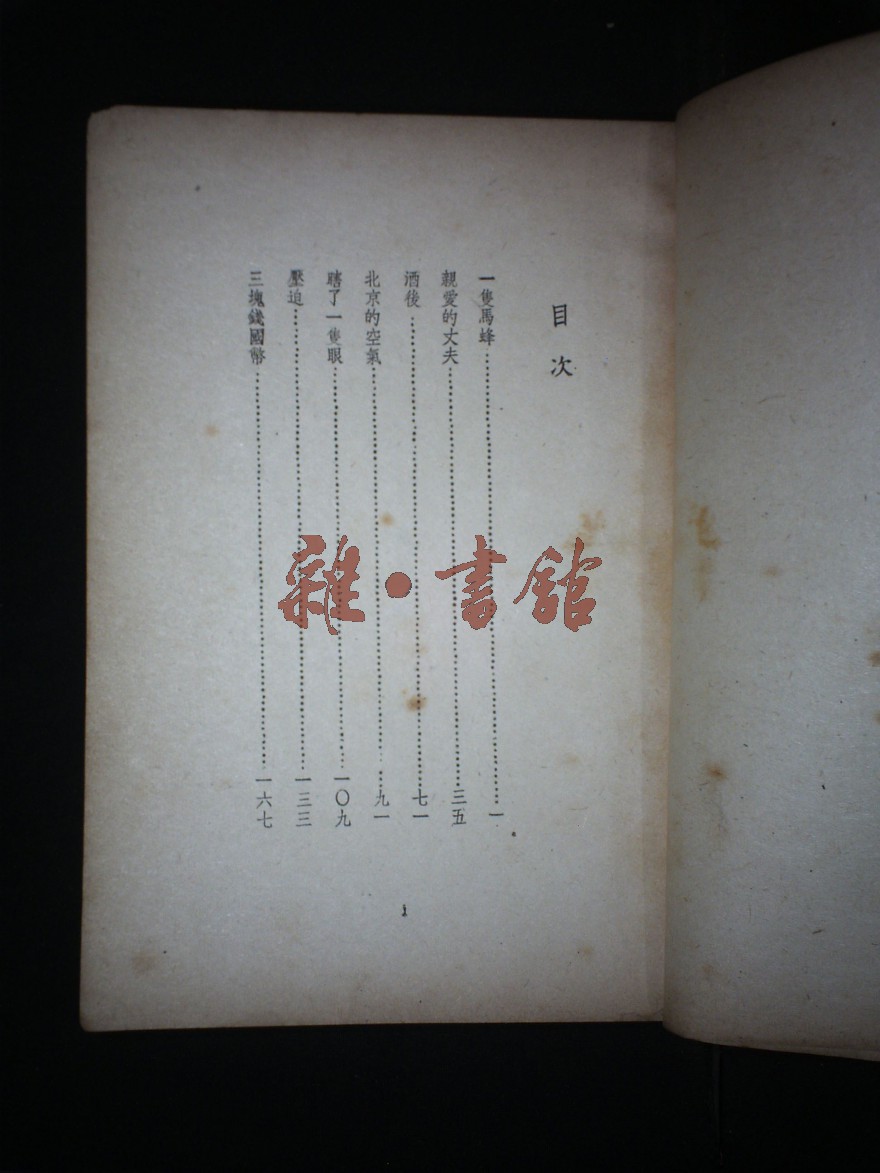 目次
一隻馬蜂……一
親愛的丈夫……三五
酒後……七一
北京的空氣……九一
瞎了一隻眼……一〇九
壓迫……一三三
三塊錢國幣……一六七
1
雜·書館